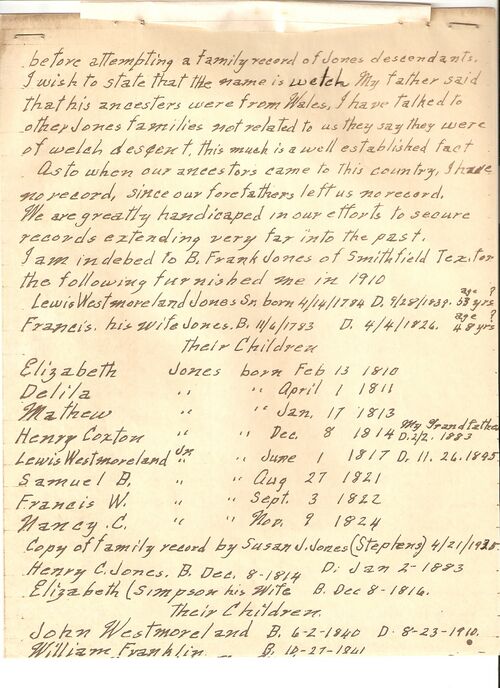 before attempting a family record of Jones descendants.
I wish to state that the name is welch My father said
that his ancesters were from Wales, I have talked to
other Jones families not related to us they say they were
of welch descent, this much is a well established fact
As to when our ancestors came to this country, I have
no record, since our forefathers left us no record,
We are greatly handicaped in our efforts to secure
records extending very far into the past.
I am indebed to B. Frank Jones of Smithfield Tex. for
the following furnished me in 1910
Lewis Westmoreland Jones Sr. born 4/14/1784 D. 9/28/1839. age ? 53 yrs
Francis. his wife Jones. B. 11/6/1783 D. 4/4/1826. age ? 48 yrs
Their Children
Elizabeth Jones born Feb 13 1810
Delila " " April 1 1811
Mathew " " Jan, 17 1813
Henry Coxton " " Dec, 8 1814 My Grandfather D. 2/2. 1883
Lewis Westmoreland Jr. " " June 1 1817 D. 11. 26. 1895
Samuel B. " " Aug 27 1821
Francis W. " " Sept. 3 1822
Nancy. C. " " Nov. 9 1824
Copy of family record by Susan J. Jones (Stephens) 4/21/1935
Henry C. Jones. B. Dec. 8-1814 D. Jan 2-1883
Elizabeth (Simpson his Wife B. Dec 8-1816.
Their Children.
John Westmoreland B. 6-2-1840 D. 8-23-1910.
William Franklin B. 10-27-1841